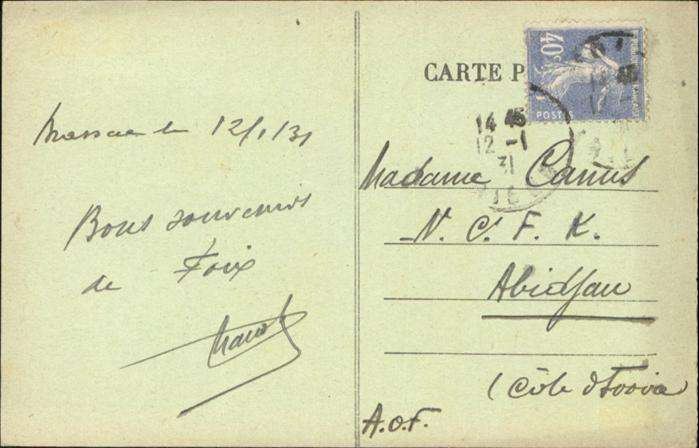 le 12/1/31
Bons souvenirs
de Foix
CARTE P
40c
POSTES
14 45
12 -1
31
Madame Camus
N. C. F. K.
Abidjan
(Côte d'Ivoire
A.O.F.